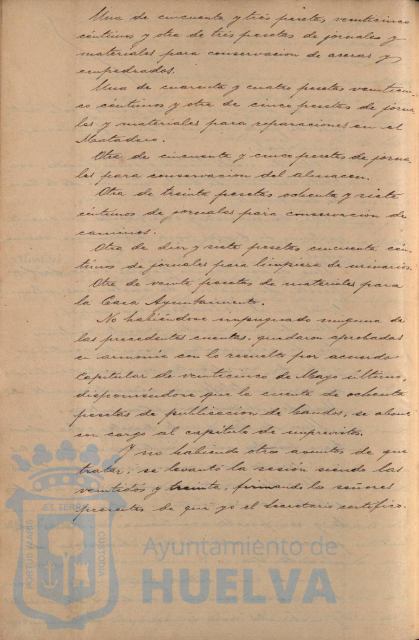 Una de cincuenta y tres pesetas veinticinco
céntimos y otra de tres pesetas de jornales y
materiales para conservacion de aceras y
empedrados.
Una de cuarenta y cuatro pesetas veinticin-
co céntimos y otra de cinco pesetas de jorna-
les y materiales para reparaciones en el
Matadero.
Otra de cincuenta y cinco pesetas de jorna-
les para conservacion del almacen.
Otra de treinta pesetas ochenta y siete
céntimos de jornales para conservacion de
caminos.
Otra de diez y siete pesetas cincuenta cén-
timos de jornales para limpieza de urinarios.
Otra de veinte pesetas de materiales para
la Casa Ayuntamiento.
No habiéndose impugnado ninguna de
las precedentes cuentas, quedaron aprobadas
en armonia con lo resuelto por acuerdo
Capitular de veinticinco de Mayo último,
disponiéndose que la cuenta de ochenta
pesetas de publicacion de bandos, se abone
con cargo al capítulo de imprevistos.
Y no habiendo otros asuntos de que
tratar, se levantó la sesión siendo las
veintidos y treinta, firmando los señores
presentes de que yo el Secretario certifico.
Ayuntamiento de
HUELVA
PORTUS MARIS
ET TERRÆ
CUSTODIA